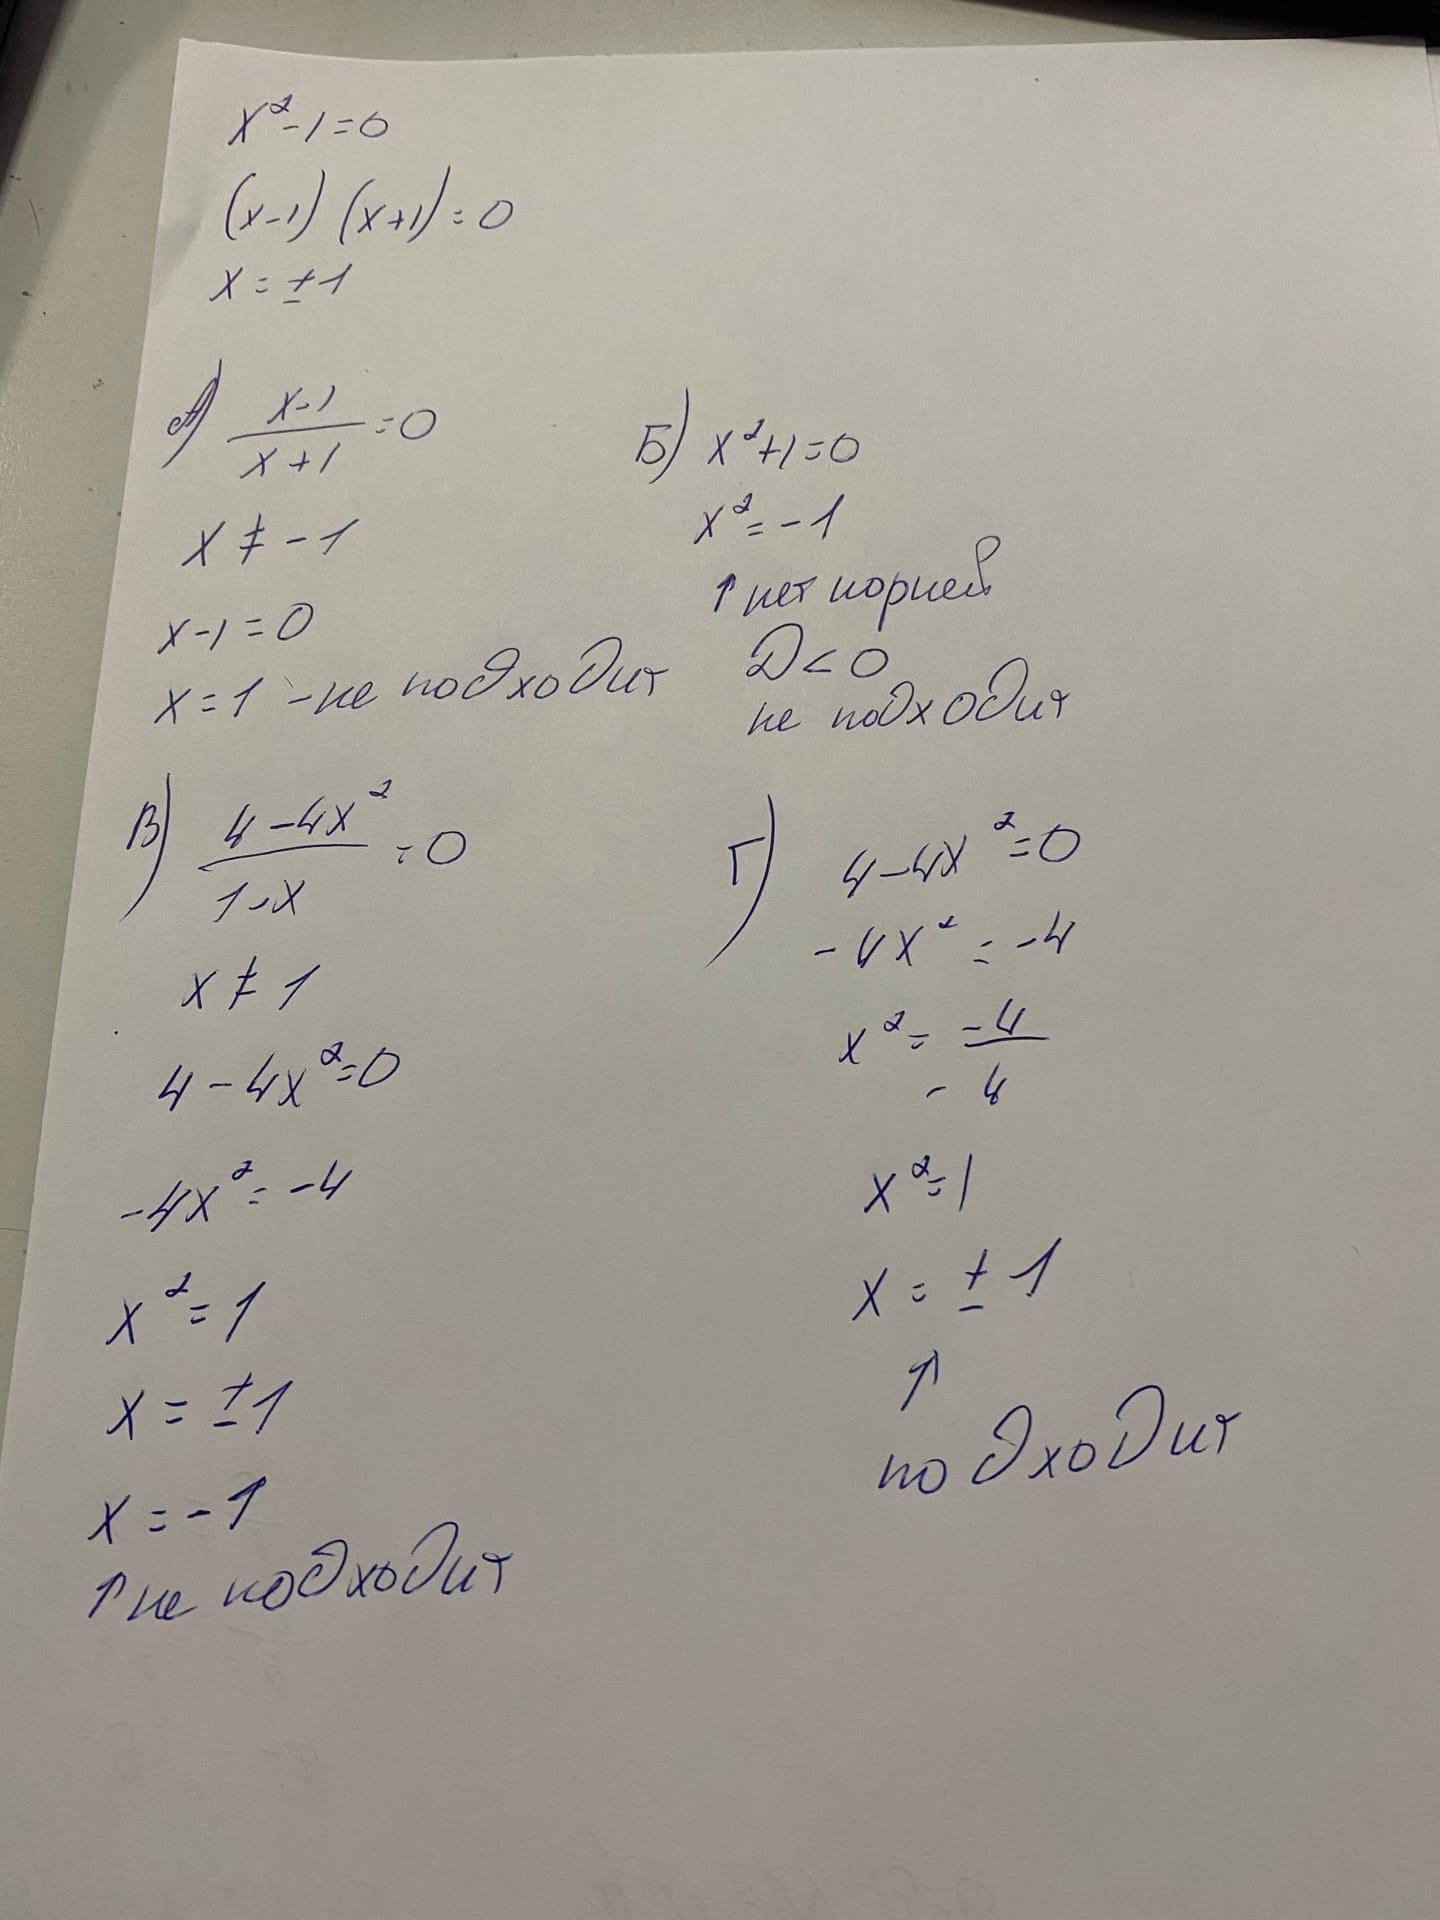 x²-1=0
(x-1)(x+1)=0
x=±1
А) x-1/x+1=0
x≠-1
x-1=0
x=1 - не подходит
Б) x²+1=0
x²=-1
↑ нет корней
D<0
не подходит
В) 4-4x²/1-x=0
x≠1
4-4x²=0
-4x²=-4
x²=1
x=±1
x=-1
↑ не подходит
Г) 4-4x²=0
-4x²=-4
x²=-4/-4
x²=1
x=±1
↑
подходит